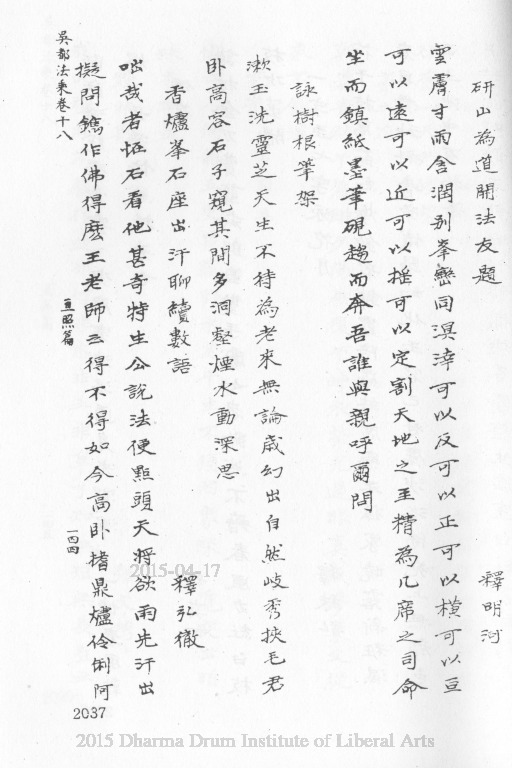 研山為道開法友題　釋明河
雲膚寸雨含潤别峯巒同溟涬可以反可以正可以横可以亘
可以遠可以近可以摇可以定割天地之至精為几席之司命
坐而鎮紙墨筆硯趨而奔吾誰與親呼爾問
詠樹根筆架
漱玉洗靈芝天生不待為老來無論歲幻出自然岐秀挾毛君
卧高容石子窺其間多洞壑煙水動深思
香爐峯石座出汗聊續數語　釋弘徹
咄哉者恠石看他甚奇特生公說法便點頭天將欲雨先汗出
擬問鐫作佛得麽王老師云得不得如今高卧揸鼎爐伶俐阿
吳都法乘卷十八　亘照篇　一四四
2037
2015-04-17
2015 Dharma Drum Institute of Liberal Arts